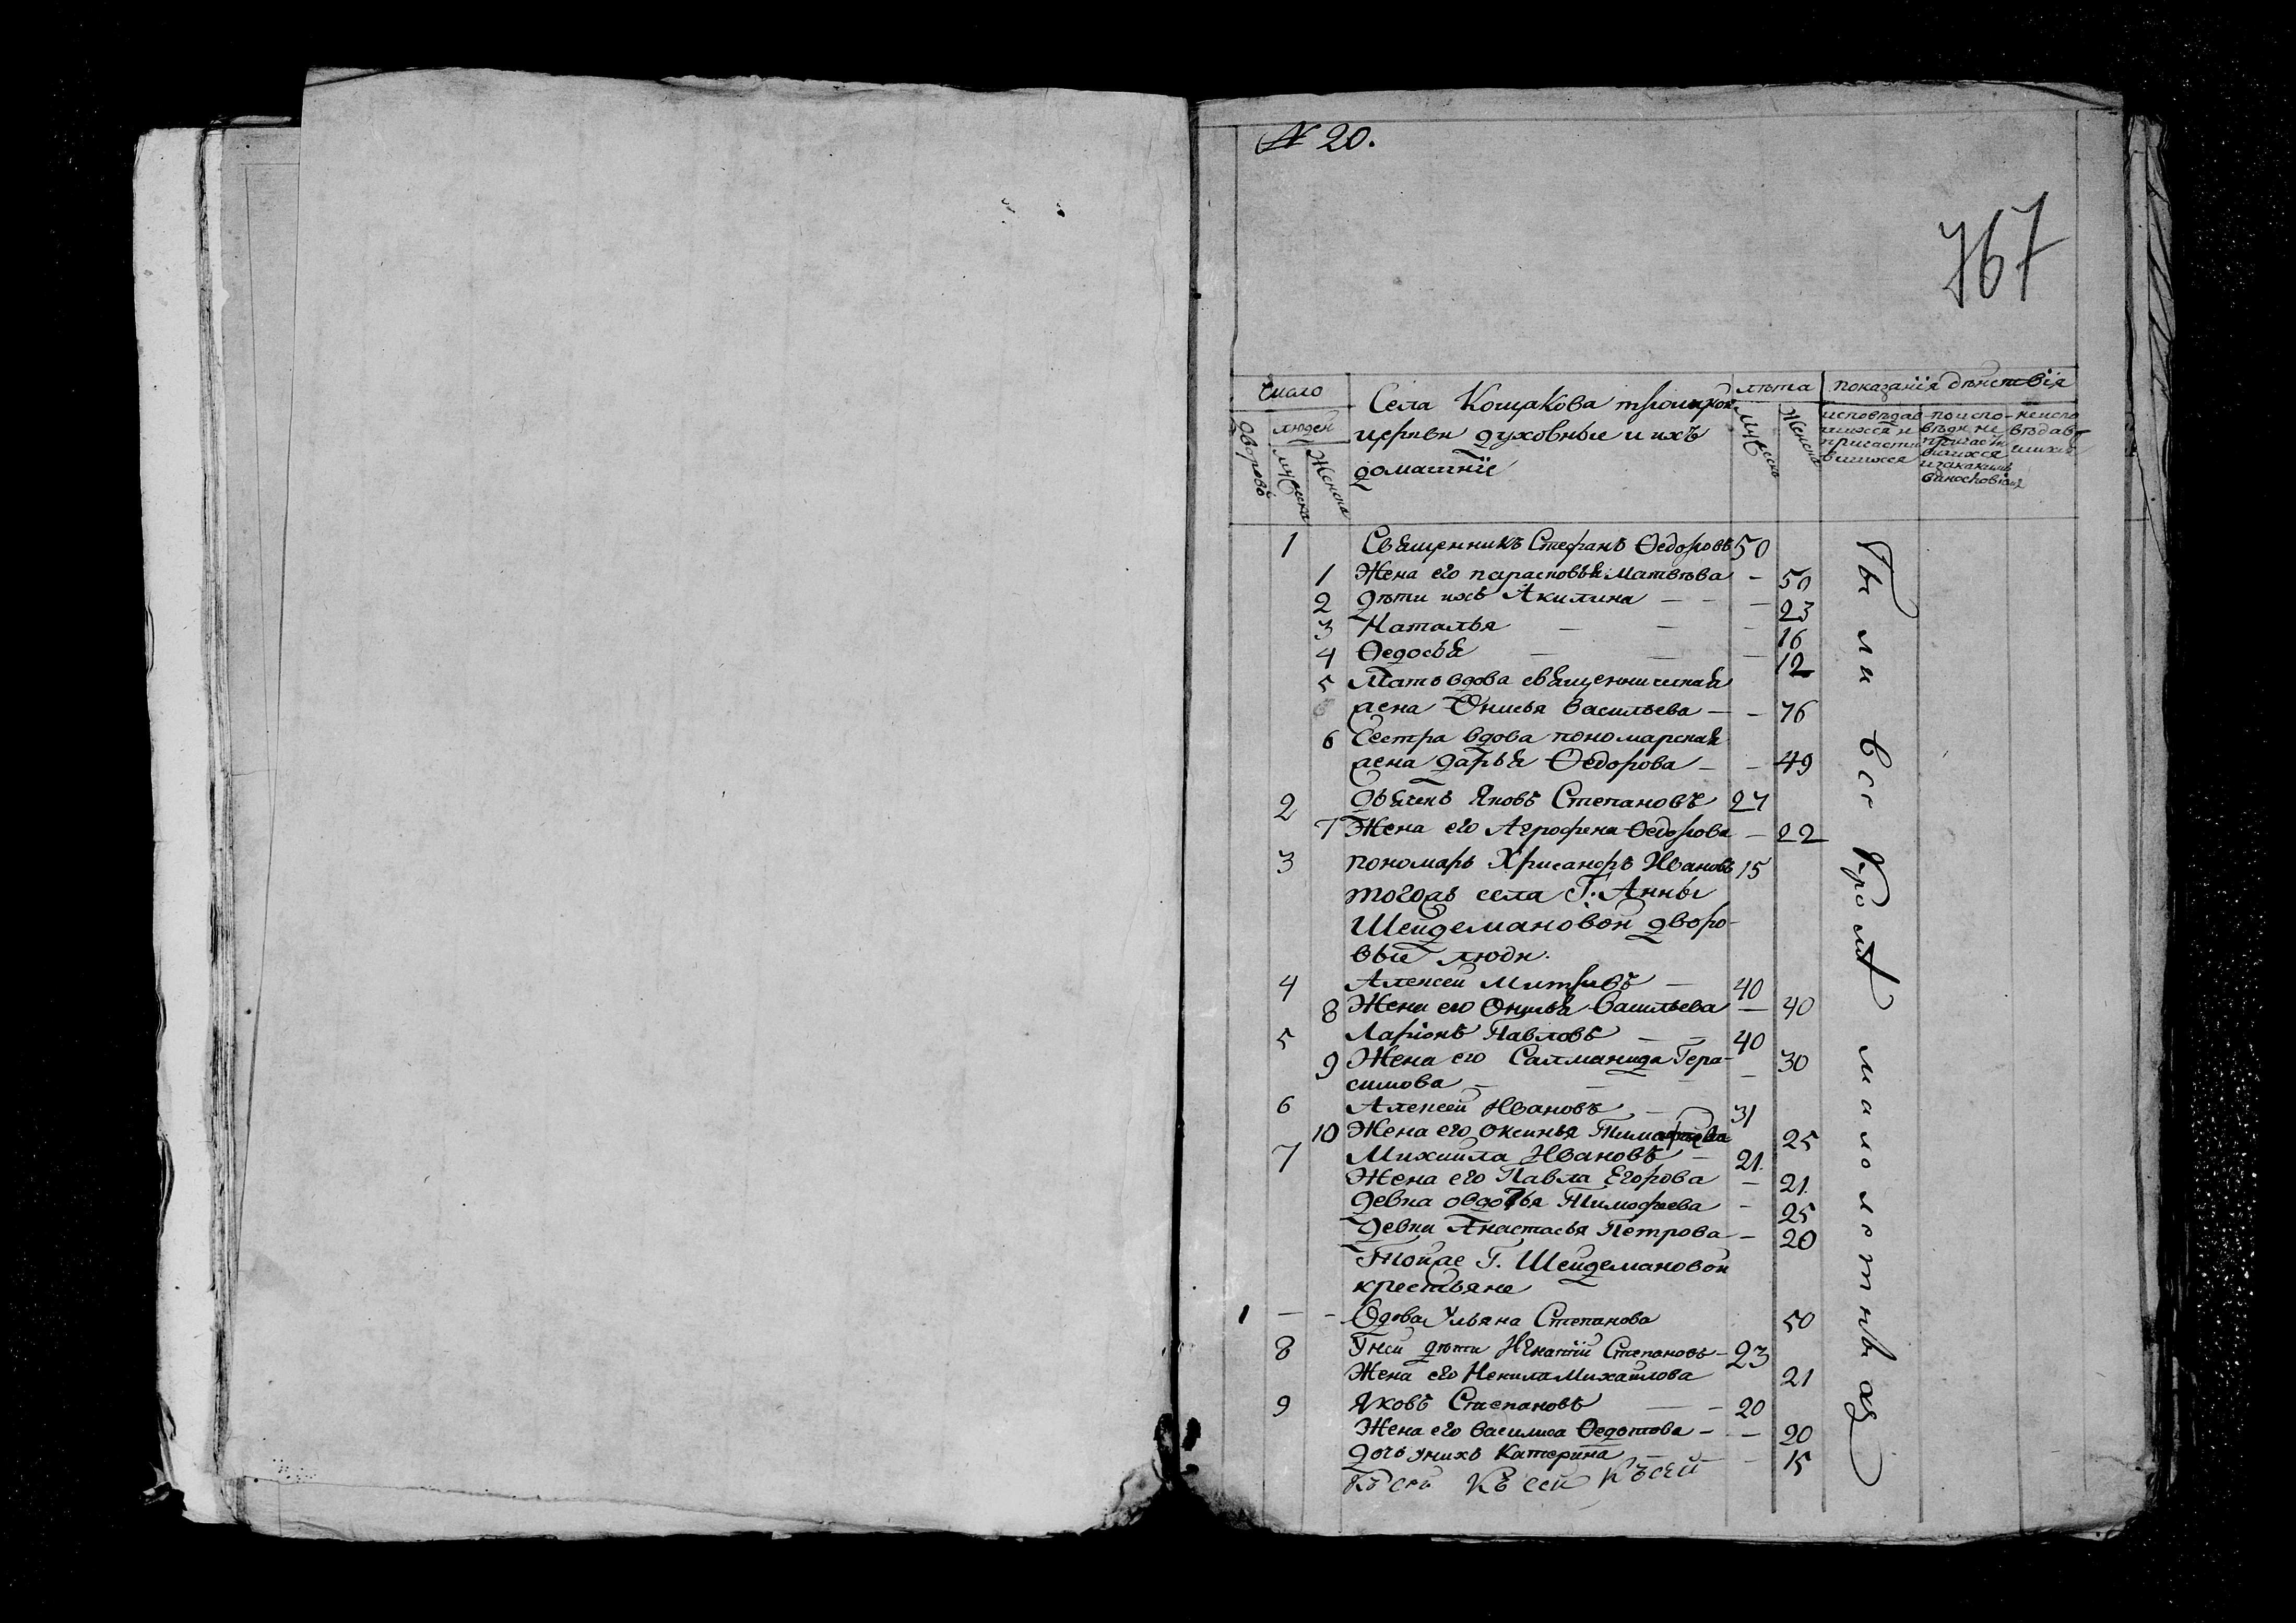 № 20.
767
число
Села Кощакова троицкой
лѣта
показанія дѣйствія
дворовъ
людей
мужеска
женска
церкви духовные и ихъ
домашніе
мужеска
женска
исповѣдав-
шихся и
причасти
вшихся
по испо-
вѣди не
причас
вшихся
и за какимъ
винословіемъ
неиспо
вѣдав
шихся
1 Священникъ Стефанъ Ѳедоровъ 50
1 Жена его парасковья Матвѣва - 50
2 дѣти ихъ Акилина - - - 23
3 Наталья - - - 16
4 Ѳедосья - - - 12
5 Мать вдова священническая
жена Онисья Васильева - - 76
6 Сестра вдова пономарская
жена дарья Ѳедорова - - 49
2 дьячекъ Яковъ Степановъ 27
7 Жена его Агрофена Ѳедорова - 22
3 пономарь Хрисанфъ Ивановъ 15
тогожъ села Г: Анны
Шейдемановой дворо-
вые люди.
4 Алексей Митревъ - 40
8 Жена его Онисья Васильева - 40
5 Ларіонъ Павловъ - - 40
9 Жена его Салманида Гера-
симова - - - - 30
6 Алексей Ивановъ - 31
10 Жена его Оксинья 25
7 Михаила Ивановъ - 21.
Жена его Павла Егорова - 21.
девка овдотья Тимофеева - 25
Девка Анастасья Петрова - 20
Тойже Г. Шейдемановой
крестьяне
1 - - Вдова Ульяна Степанова 50
8 Уней дѣти Игнатій Степановъ - 23
Жена его Ненила Михаилова 21
9 Яковъ Степановъ - - 20
Жена его Василиса Ѳедотова - - 20
дочь унихъ Катерина - - 15
Къ сей Къ сей Къ сей
были все кромѣ малолетныхъ